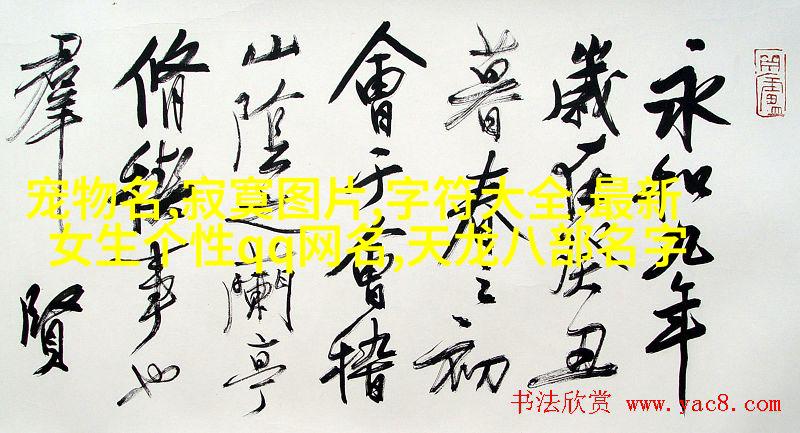 永和九年
歲在癸丑
暮春之初
會于會稽
山陰之蘭亭
脩禊事也
羣賢
宠物名,寂寞图片,字符大全,最新
女生个性qq网名,天龙八部名字
书法欣赏 www.yac8.com